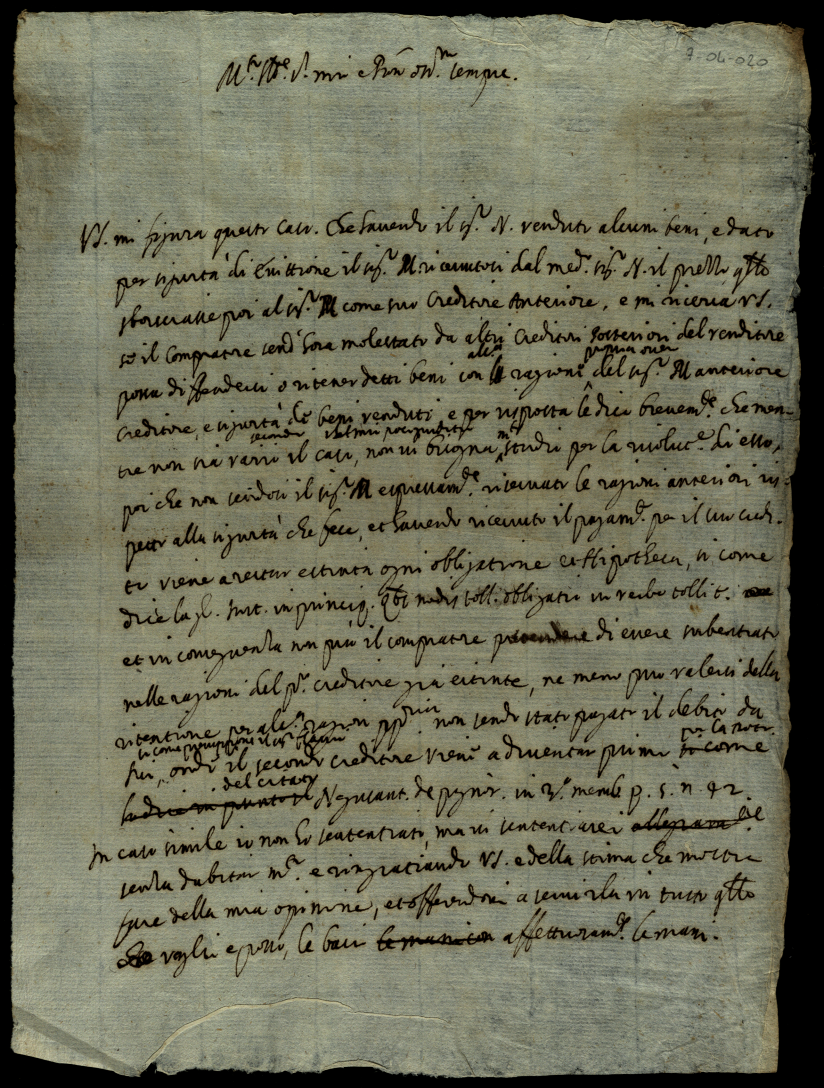 7-04-020
M.to Ill.re S.r mio e P̃rõn oss.mo sempre.
VS. mi figura questo caso. Che havendo il sig.r N. venduto alcuni beni, e dato
per sigurtà di Evittione il sig.r M. ricevutosi dal med.o sig.r N. il prezzo, q̃llo
sborsasse poi al sig.r M come suo Creditore Anteriore, e mi ricerca VS.
se il Compratore send.o hora molestato da altri Creditori Posteriori del venditore
possa diffendersi o ritener detti beni con alc.a ragione del sig.r M anteriore
creditore, e sigurtà de beni venduti, e per risposta le dico brevem.te che men-
tre non sia vario il caso, non vi bisogna m.to studio per la risoluc.e di esso,
poi che non sendosi il sig.r M espressam.te riservato le ragioni anteriori ris-
petto alla sigurtà che fece, et havendo ricevuto il pagam.to per il suo credi-
to viene a restar estinta ogni obligatione et Hipotheca, si come
dice la gl. Inst. in princip. Qbs modis toll. obligatio in verbo tollit.
et in conseguenza non può il compratore pretendere di essere subentrato
nelle ragioni del p.o creditore già estinte, ne meno può valersi della
ritentione per alc.a ragion pp̃ria non sendo stato pagato il debito da
lui, onde il secondo creditore viene a diventar primo si come
del citato Negusant. de pignor. in 2.a memb. p. 5. n. 42
In caso simile io non ho sententiato, ma vi sententiarei
senza dubitar m.to e ringratiando VS. e della stima che mostra
fare della mia opinione, et offerendomi a servirla in tutto q̃llo
che voglio e posso, le baci le mani con affettuosam.te le mani.